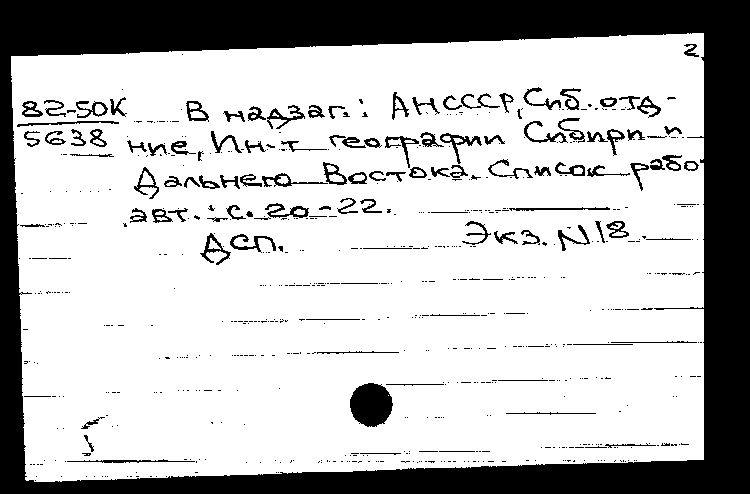 2.
82-50К В надзаг.: АН СССР, Сиб. отд-
5638 ние, Ин-т географии Сибири и
Дальнего Востока. Список работ
авт.: с. 20-22.
ДСП. Экз. N 18.